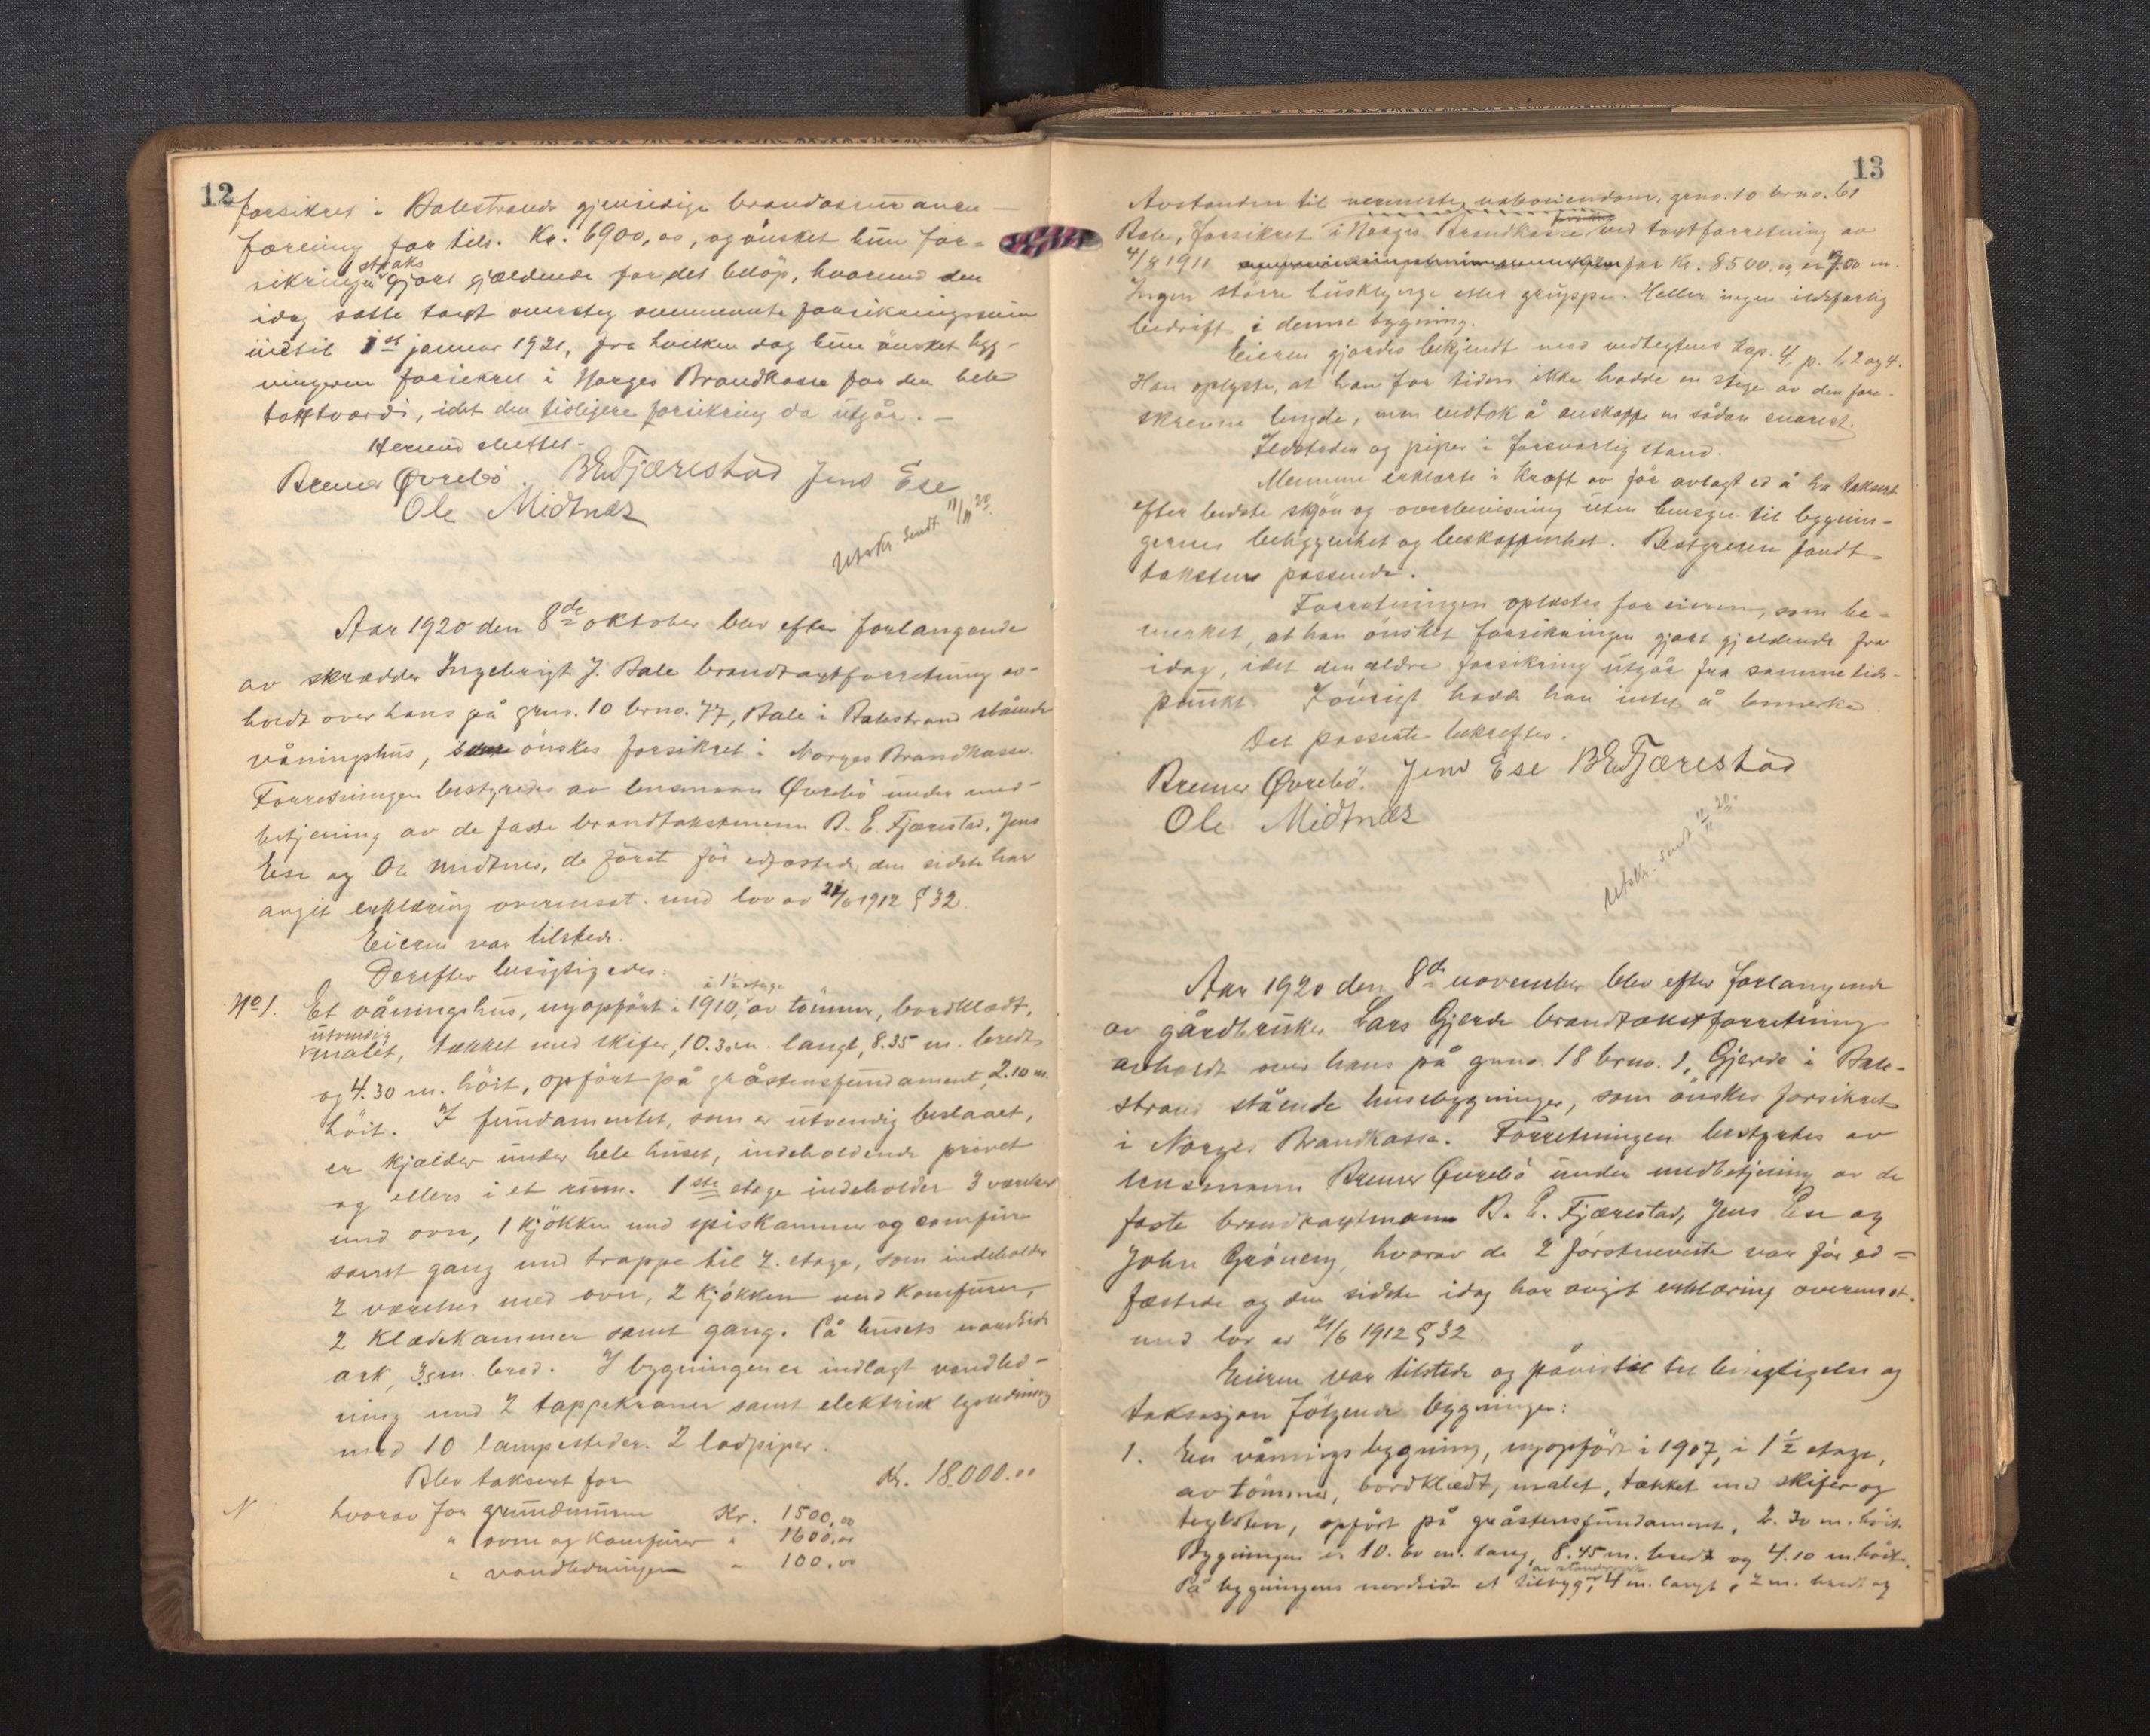 12
forsikret i Balestrands gjensidige brandassuranse-
forening for tils. Kr. 6900,00, og ønsket hun for-
sikringen straks gjort gjældende for det beløp, hvormed den
idag satte takst oversteg ovennevnte forsikringssum
indtil 1st januar 1921, fra hvilken dag hun ønsket byg-
ningerne forsikret i Norges Brandkasse for den hele
takstværdi, idet den tidligere forsikring da utgår. —
Hermed sluttet.
Bremer Øvrebö. B E Fjærestad Jens Ese
Ole Midtnæs
Utskr. sendt 11/11 20.
Aar 1920 den 8de oktober blev efter forlangende
av skrædder Ingebrigt J. Bale brandtaxtforretning av-
holdt over hans på grno. 10 brno. 77, Bale i Balestrand stående
våningshus, som ønskes forsikret i Norges Brandkasse.
Forretningen bestyredes av lensmann Øvrebö under med-
betjening av de faste brandtakstmenn B. E. Fjærestad, Jens
Ese og Ole Midtnes, de först för edfæstede, den sidste har
avgit erklæring overensst. med lov av 21/6 1912 § 32.
Eieren var tilstede.
Derefter besigtigedes:
No 1. Et våningshus, nyopfört i 1910, i 1½ etage av tömmer, bordklædt,
utvendig malet, tækket med skifer, 10.30 m. langt, 8.35 m. bredt
og 4.30 m. höit, opfört på gråstensfundament, 2.10 m.
höit. I fundamentet, som er utvendig beslaaet,
er kjælder under hele huset, indeholdende privet
og ellers i et rum. 1ste etage indeholder 3 værelser
med ovn, 1 kjökken med spiskammer og comfur
samt gang med trappe til 2. etage, som indeholder
2 værelser med ovn, 2 kjökken med komfurer,
2 klædekammer samt gang. På husets nordside
ark, 3.5 m. bred. I bygningen er indlagt vandled-
ning med 2 tappekraner samt elektrisk lysledning
med 10 lampesteder. 2 lodpiper.
Blev taksert for Kr. 18000.00
N hvorav for grundmuren Kr. 1500,00
" ovne og komfurer " 1600.00
" vandledningen " 100.00
13
Avstanden til nærmeste naboeiendom, grno. 10 brno. 61
Bale, forsikret i Norges Brandkasse ved taxtforretning av
4/8 1911 for Kr. 8500. og er 7.00 m.
Ingen större husklynge eller gruppe. Heller ingen ildsfarlig
bedrift i denne bygning.
Eieren gjordes bekjendt med vedtegtens kap. 4, p. 1, 2 og 4.
Han oplyste, at han for tiden ikke hadde en stige av den fore-
skrevne lengde, men lndtok å anskaffe en sådan snarest.
Ildsteder og piper i forsvarlig stand.
Mennene erklærte i kraft av för avlagt ed å ha taksert
efter bedste skjön og overbevisning uten hensyn til bygnin-
gernes behyggenhet og beskaffenhet. Bestyreren fandt
taksten passende.
Forretningen oplæstes for eieren, som be-
merket, at han önsket forsikringen gjort gjeldende fra
idag, idet den ældre forsikring utgår fra samme tids-
punkt. Iövrigt hadde han intet å bemerke.
Det passerte bekreftes.
Bremer Øvrebö. Jens Ese B E Fjærestad
Ole Midtnæs
Utskr. sendt 12/11 20.
Aar 1920 den 8de november blev efter forlangende
av gårdbruker Lars Gjerde brandtakstforretning
avholdt over hans på gno. 18 brno. 1, Gjerde i Bale-
strand stående husebygninger, som önskes forsikret
i Norges Brandkasse. Forretningen bestyrtes av
lensmann Bremer Øvrebö under medbetjening av de
faste brandtaxtmenn B. E. Fjærestad, Jens Ese og
John Gröneng, hvorav de 2 förstnevnte var för ed-
fæstede og den sidste idag har avgit erklæring overensst.
med lov av 21/6 1912 § 32.
Eieren var tilstede og påviste til besigtigelse og
taksasjon fölgende bygninger:
1. En våningsbygning, nyopfört i 1907, i 1½ etage,
av tömmer, bordklædt, malet, tækket med skifer og
teglsten, opfört på gråstensfundament, 2.30 m. höit.
Bygningen er 10.60 m. lang, 8.45 m. bredt og 4.10 m. höit.
På bygningens nordside et tilbyg, 4 m. langt, 2 m. bredt og